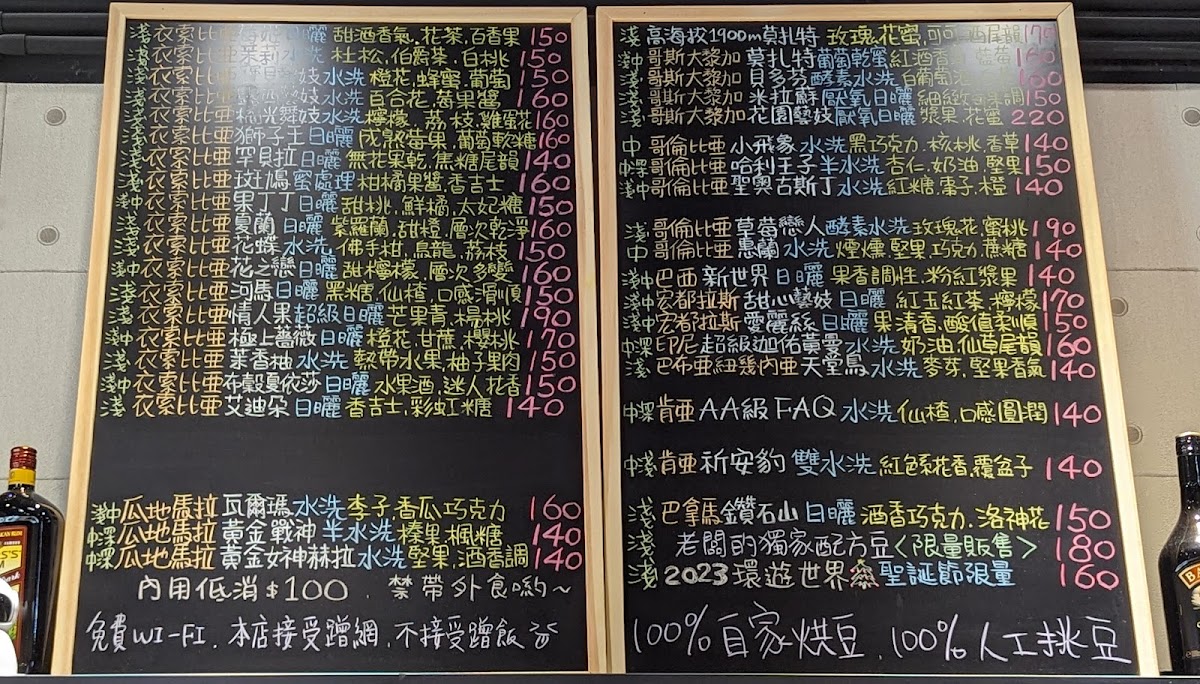 淺 衣索比亞 日曬 甜酒香氣.花茶.百香果 150
淺 衣索比亞 茉莉 水洗 杜松,伯爵茶.白桃 150
淺 衣索比亞 藝妓 水洗 橙花,蜂蜜,葡萄 150
淺 衣索比亞 藝妓 水洗 百合花,莓果醬 160
淺 衣索比亞 陽光舞妓 水洗 檸檬.荔枝,雞蛋花 160
淺 衣索比亞 獅子王 日曬 成熟莓果.葡萄軟糖 160
淺 衣索比亞 罕貝拉 日曬 無花果乾,焦糖尾韻 140
淺 衣索比亞 斑鳩 蜜處理 柑橘果醬,香吉士 160
淺中 衣索比亞 果丁丁 日曬 甜桃,鮮橘.太妃糖 150
淺中 衣索比亞 夏蘭 日曬 紫羅蘭,甜橙.層次乾淨 160
淺 衣索比亞 花蝶 水洗 佛手柑,烏龍,荔枝 150
淺中 衣索比亞 花之戀 日曬 甜檸檬.層次多變 160
淺 衣索比亞 河馬 日曬 黑糖.仙楂,口感滑順 150
淺 衣索比亞 情人果 超級日曬 芒果青.楊桃 190
淺中 衣索比亞 極上薔薇 日曬 橙花,甘蔗.櫻桃 170
淺 衣索比亞 葉香柚 水洗 熱帶水果,柚子果肉 150
淺中 衣索比亞 布穀夏依莎 日曬 水果酒.迷人花香 150
淺 衣索比亞 艾迪朵 日曬 香吉士,彩虹糖 140
淺中 瓜地馬拉 瓦爾瑪 水洗 李子.香瓜.巧克力 160
中深 瓜地馬拉 黃金戰神 半水洗 榛果.楓糖 140
中深 瓜地馬拉 黃金女神赫拉 水洗 堅果.酒香調 140
內用低消$100.禁帶外食喲~
免費WI-FI.本店接受蹭網.不接受蹭飯
淺 高海拔1900m莫扎特 玫瑰.花蜜,可可.酒尾韻 170
淺中 哥斯大黎加 莫扎特 葡萄乾蜜 紅酒香氣.藍莓 160
淺 哥斯大黎加 貝多芬 酵素水洗 白葡萄酒 160
淺 哥斯大黎加 米拉蘇 厭氧日曬 細緻莓果調 150
淺 哥斯大黎加 花園藝妓 厭氧日曬 漿果.花蜜 220
中 哥倫比亞 小飛象 水洗 黑巧克力.核桃.香草 140
中深 哥倫比亞 哈利王子 半水洗 杏仁.奶油.堅果 150
淺中 哥倫比亞 聖奧古斯丁 水洗 紅糖.棗子.橙 140
淺 哥倫比亞 草莓戀人 酵素水洗 玫瑰花,蜜桃 190
中 哥倫比亞 惠蘭 水洗 煙燻.堅果.巧克力.蔗糖 140
淺中 巴西 新世界 日曬 果香調性.粉紅漿果 140
淺中 宏都拉斯 甜心藝妓 日曬 紅玉紅茶.檸檬 170
淺中 宏都拉斯 愛麗絲 日曬 果清香.酸值柔順 150
中深 印尼 超級迦佑黃曼 水洗 奶油.仙草尾韻 160
淺 巴布亞紐幾內亞 天堂鳥 水洗 麥芽.堅果香氣 140
中深 肯亞 AA級 FAQ 水洗 仙楂.口感圓潤 140
中淺 肯亞 祈安豹 雙水洗 紅色系花香.覆盆子 140
淺 巴拿馬 鑽石山 日曬 酒香巧克力.洛神花 150
淺 老闆的獨家配方豆<限量販售> 180
淺 2023環遊世界 聖誕節限量 160
100%自家烘豆.100%人工挑豆